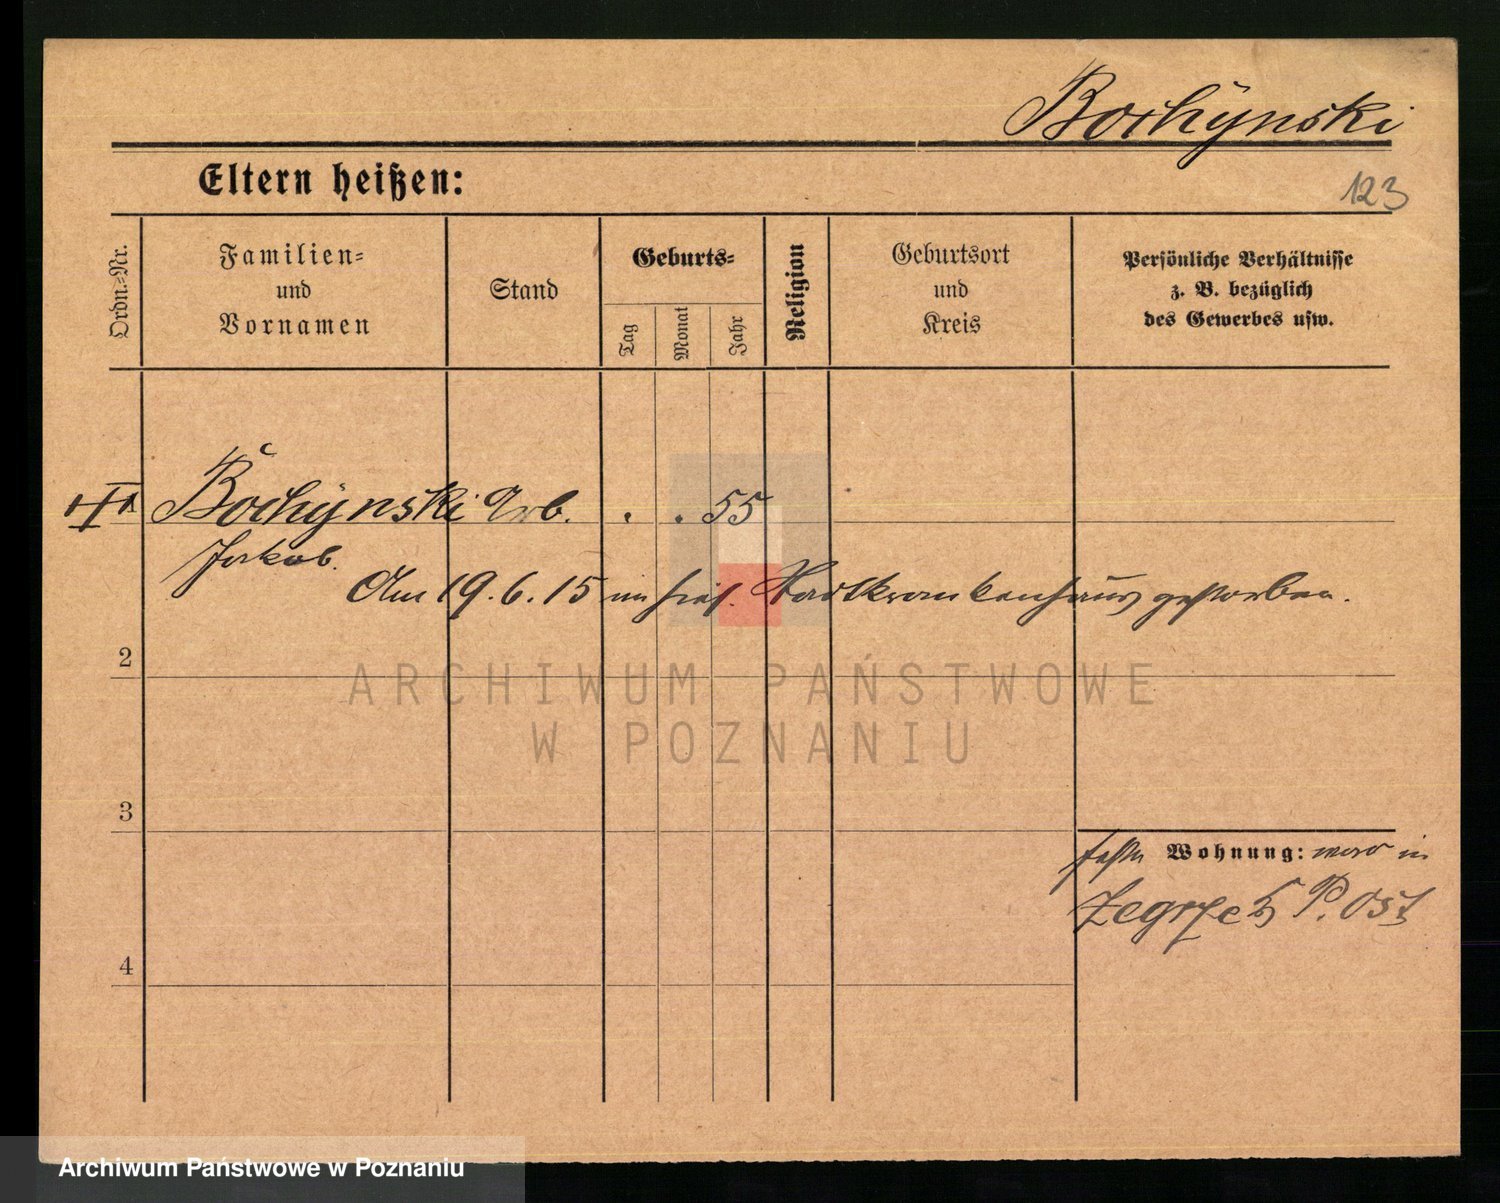 Bochynski
Eltern heißen:
123
Ordn.=Nr.
Familien=
und
Vornamen
Stand
Geburts=
Tag
Monat
Jahr
Religion
Geburtsort
und
Kreis
Persönliche Verhältnisse
z. B. bezüglich
des Gewerbes usw.
Bochynski Arb. . . 55
Jakob.
Am 19.6.15 im hies. Stadtkrankenhaus gestorben.
2
ARCHIWUM PAŃSTWOWE
W POZNANIU
3
Wohnung: war in
Zegrze P. Ost
4
Archiwum Państwowe w Poznaniu